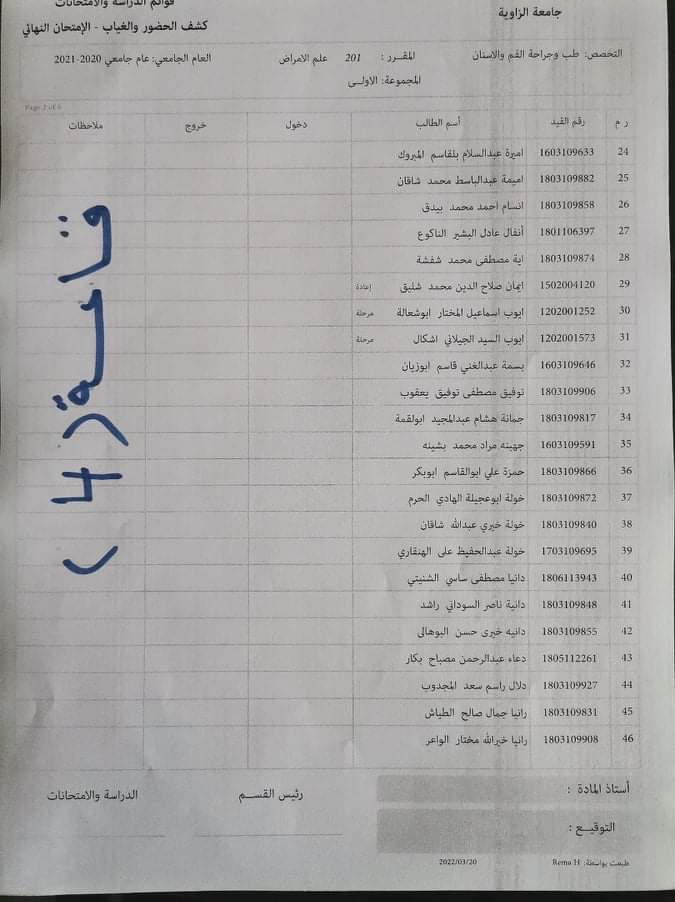 جامعة الزاوية
قوائم الدراسة والامتحانات
كشف الحضور والغياب - الإمتحان النهائي
التخصص: طب وجراحة الفم والاسنان المقـــرر : 201 علم الامراض العام الجامعي: عام جامعي 2020-2021
المجموعة: الاولــى
Page 2 of 6
ر م رقم القيد أسم الطالب دخول خروج ملاحظات
24 1603109633 اميرة عبدالسلام بلقاسم المبروك
25 1803109882 اميمة عبدالباسط محمد شاقان
26 1803109858 انسام احمد محمد بيدق
27 1801106397 أنفال عادل البشير الناكوع
28 1803109874 اية مصطفى محمد شفشة
29 1502004120 ايمان صلاح الدين محمد شليق إعادة
30 1202001252 ايوب اسماعيل المختار ابوشعالة مرحلة
31 1202001573 ايوب السيد الجيلاني اشكال مرحلة
32 1603109646 بسمة عبدالغني قاسم ابوزيان
33 1803109906 توفيق مصطفى توفيق يعقوب
34 1803109817 جمانة هشام عبدالمجيد ابولقمة
35 1603109591 جهينه مراد محمد بشينه
36 1803109866 حمزة علي ابوالقاسم ابوبكر
37 1803109872 خولة ابوعجيلة الهادي الحرم
38 1803109840 خولة خيري عبدالله شاقان
39 1703109695 خولة عبدالحفيظ على الهنقاري
40 1806113943 دانيا مصطفى ساسي الشنيتي
41 1803109848 دانية ناصر السوداني راشد
42 1803109855 دانيه خيرى حسن البوهالى
43 1805112261 دعاء عبدالرحمن مصباح بكار
44 1803109927 دلال راسم سعد المجدوب
45 1803109831 رانيا جمال صالح الطياش
46 1803109908 رانيا خيرالله مختار الواعر
قاعة (4)
أستاذ المادة : رئيس القســـم الدراسة والامتحانات
التوقيـــع :
طبعت بواسطة: Rema H 2022/03/20